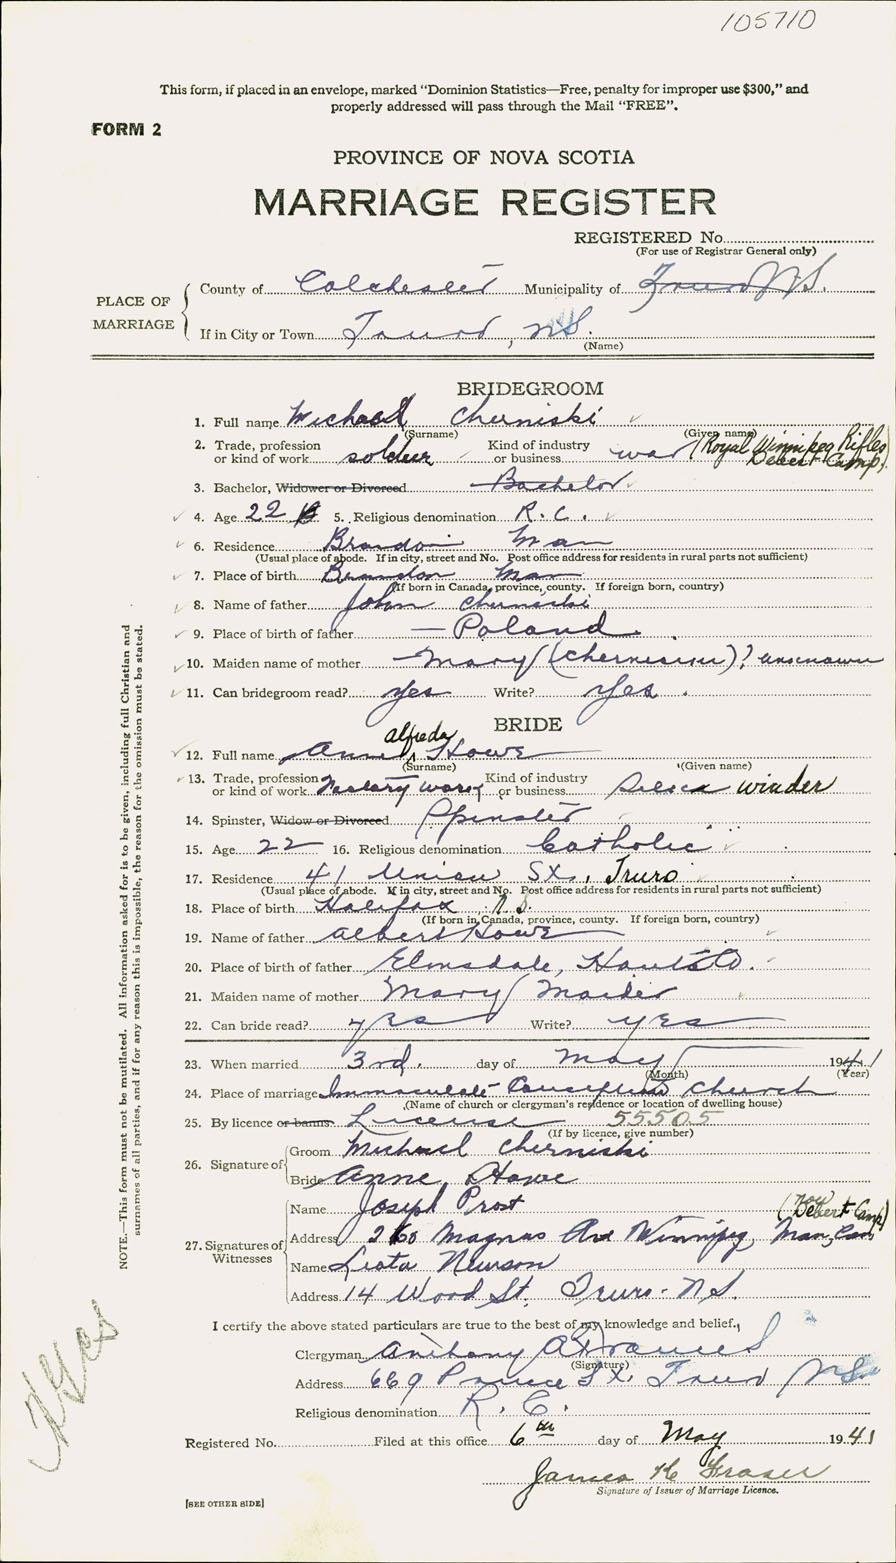 105710
This form, if placed in an envelope, marked "Dominion Statistics—Free, penalty for improper use $300," and
properly addressed will pass through the Mail "FREE".
FORM 2
PROVINCE OF NOVA SCOTIA
MARRIAGE REGISTER
REGISTERED No.
(For use of Registrar General only)
PLACE OF MARRIAGE
County of Colchester Municipality of Truro N.S.
If in City or Town Truro, N.S.
(Name)
BRIDEGROOM
1. Full name Michael Cherniski
(Surname) (Given name)
2. Trade, profession or kind of work soldier Kind of industry or business war (Royal Winnipeg Rifles Debert Camp)
3. Bachelor, Widower or Divorced Bachelor
4. Age 22 5. Religious denomination R.C.
6. Residence Brandon Man
(Usual place of abode. If in city, street and No. Post office address for residents in rural parts not sufficient)
7. Place of birth Brandon Man
(If born in Canada, province, county. If foreign born, country)
8. Name of father John Cherniski
9. Place of birth of father — Poland
10. Maiden name of mother — Mary ? unknown
11. Can bridegroom read? yes Write? Yes.
BRIDE
12. Full name Anne Alfreda Howe
(Surname) (Given name)
13. Trade, profession or kind of work Factory work Kind of industry or business winder
14. Spinster, Widow or Divorced Spinster
15. Age 22 16. Religious denomination Catholic
17. Residence 41 Union St., Truro
(Usual place of abode. If in city, street and No. Post office address for residents in rural parts not sufficient)
18. Place of birth Halifax N.S.
(If born in Canada, province, county. If foreign born, country)
19. Name of father Albert Howe
20. Place of birth of father Elmsdale, Hants Co.
21. Maiden name of mother Mary
22. Can bride read? yes Write? yes
23. When married 3rd. day of May 1941
(Month) (Year)
24. Place of marriage Immaculate Conception Church
(Name of church or clergyman's residence or location of dwelling house)
25. By licence or banns License 55505
(If by licence, give number)
26. Signature of
Groom Michael Cherniski
Bride Anne Howe
27. Signatures of Witnesses
Name Joseph Prost (now Debert Camp)
Address Magnus Ave Winnipeg, Man, Can
Name Leota Newson
Address 14 Wood St. Truro. N.S.
I certify the above stated particulars are true to the best of my knowledge and belief.
Clergyman Anthony
(Signature)
Address 669 Prince St. Truro N.S.
Religious denomination R.C.
Registered No. Filed at this office 6th day of May 1941
James K Fraser
Signature of Issuer of Marriage Licence.
[SEE OTHER SIDE]
NOTE.—This form must not be mutilated. All information asked for is to be given, including full Christian and
surnames of all parties, and if for any reason this is impossible, the reason for the omission must be stated.